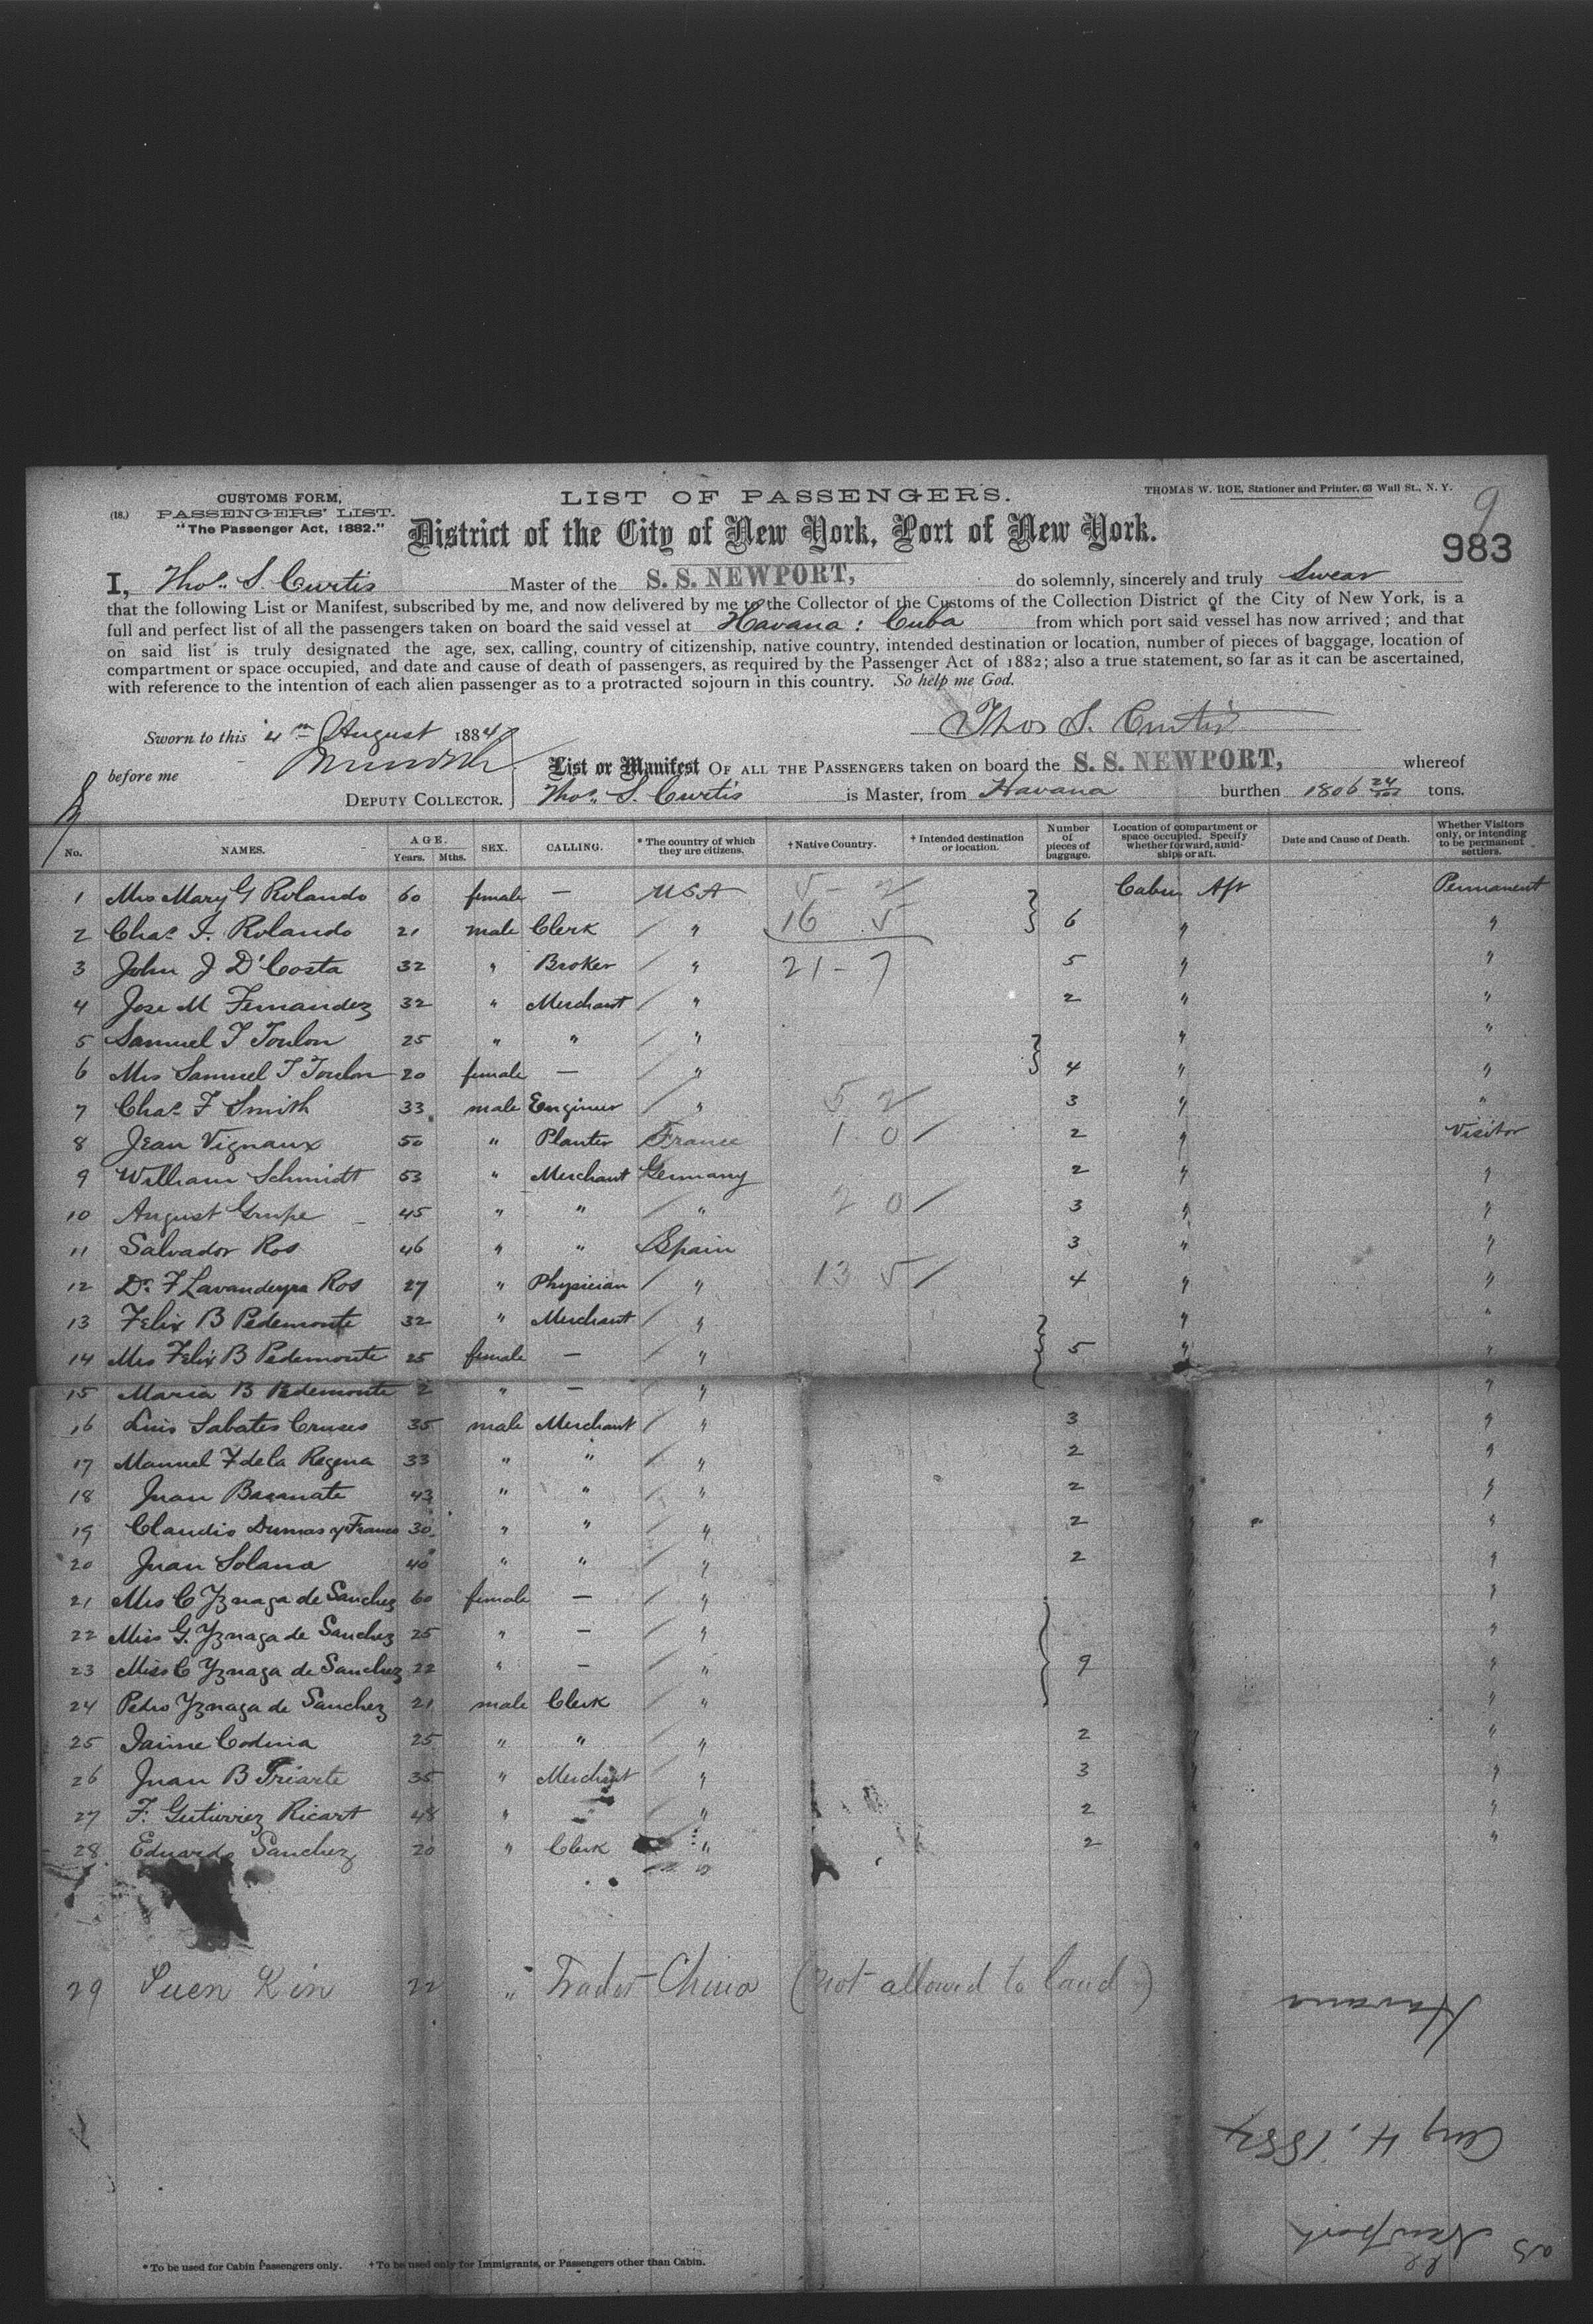 CUSTOMS FORM,
(18.) PASSENGERS' LIST.
"The Passenger Act, 1882."
LIST OF PASSENGERS.
THOMAS W. ROE, Stationer and Printer, 63 Wall St., N. Y.
9
District of the City of New York, Port of New York.
983
I, Thos. S. Curtis Master of the S. S. NEWPORT, do solemnly, sincerely and truly Swear
that the following List or Manifest, subscribed by me, and now delivered by me to the Collector of the Customs of the Collection District of the City of New York, is a
full and perfect list of all the passengers taken on board the said vessel at Havana : Cuba from which port said vessel has now arrived ; and that
on said list is truly designated the age, sex, calling, country of citizenship, native country, intended destination or location, number of pieces of baggage, location of
compartment or space occupied, and date and cause of death of passengers, as required by the Passenger Act of 1882; also a true statement, so far as it can be ascertained,
with reference to the intention of each alien passenger as to a protracted sojourn in this country. So help me God.
Thos S. Curtis
Sworn to this 4th August 1884
before me
List or Manifest OF ALL THE PASSENGERS taken on board the S. S. NEWPORT, whereof
DEPUTY COLLECTOR. Thos. S. Curtis is Master, from Havana burthen 1806 24/100 tons.
No. NAMES. AGE. Years. Mths. SEX. CALLING. * The country of which they are citizens. † Native Country. † Intended destination or location. Number of pieces of baggage. Location of compartment or space occupied. Specify whether forward, amidships or aft. Date and Cause of Death. Whether Visitors only, or intending to be permanent settlers.
1 Mrs Mary G Rolando 60 female — USA 5 - 2 Cabin Aft Permanent
2 Chas. I. Rolando 21 male Clerk / " 16 5 6 " "
3 John J D'Costa 32 " Broker / " 21 - 7 5 " "
4 Jose M Fernandez 32 " Merchant / " 2 " "
5 Samuel T Toulon 25 " " / " " "
6 Mrs Samuel T Toulon 20 female — / " 4 " "
7 Chas. F Smith 33 male Engineer / " 5 2 3 " "
8 Jean Vignaux 50 " Planter France 1 0 / 2 " Visitor
9 William Schmidt 53 " Merchant Germany 2 " "
10 August Grupe 45 " " / " 2 0 / 3 " "
11 Salvador Ros 46 " " Spain 3 " "
12 Dr. F Lavandeyra Ros 27 " Physician / " 13 5 / 4 " "
13 Felix B Pedemonte 32 " Merchant / " " "
14 Mrs Felix B Pedemonte 25 female — / " 5 " "
15 Maria B Pedemonte 2 " — " "
16 Luis Sabates Cruses 35 male Merchant / " 3 "
17 Manuel F de la Regena 33 " " / " 2 " "
18 Juan Basanate 43 " " / " 2 "
19 Claudio Dumas y Franco 30 " " / " 2 " "
20 Juan Solana 40 " " / " 2 "
21 Mrs C Yznaga de Sanchez 60 female — / " "
22 Miss G. Yznaga de Sanchez 25 " — / " "
23 Miss C Yznaga de Sanchez 22 " — / " 9 "
24 Pedro Yznaga de Sanchez 21 male Clerk / " "
25 Jaime Codina 25 " " / " 2 " "
26 Juan B Iriarte 35 " Merchant / " 3 " "
27 F. Gutierrez Ricart 48 " — / " 2 "
28 Eduardo Sanchez 20 " Clerk " 2 " "
29 Suen Kin 22 " Trader China (not allowed to land)
Havana
Aug 4, 1884
Newport
* To be used for Cabin Passengers only. † To be used only for Immigrants, or Passengers other than Cabin.